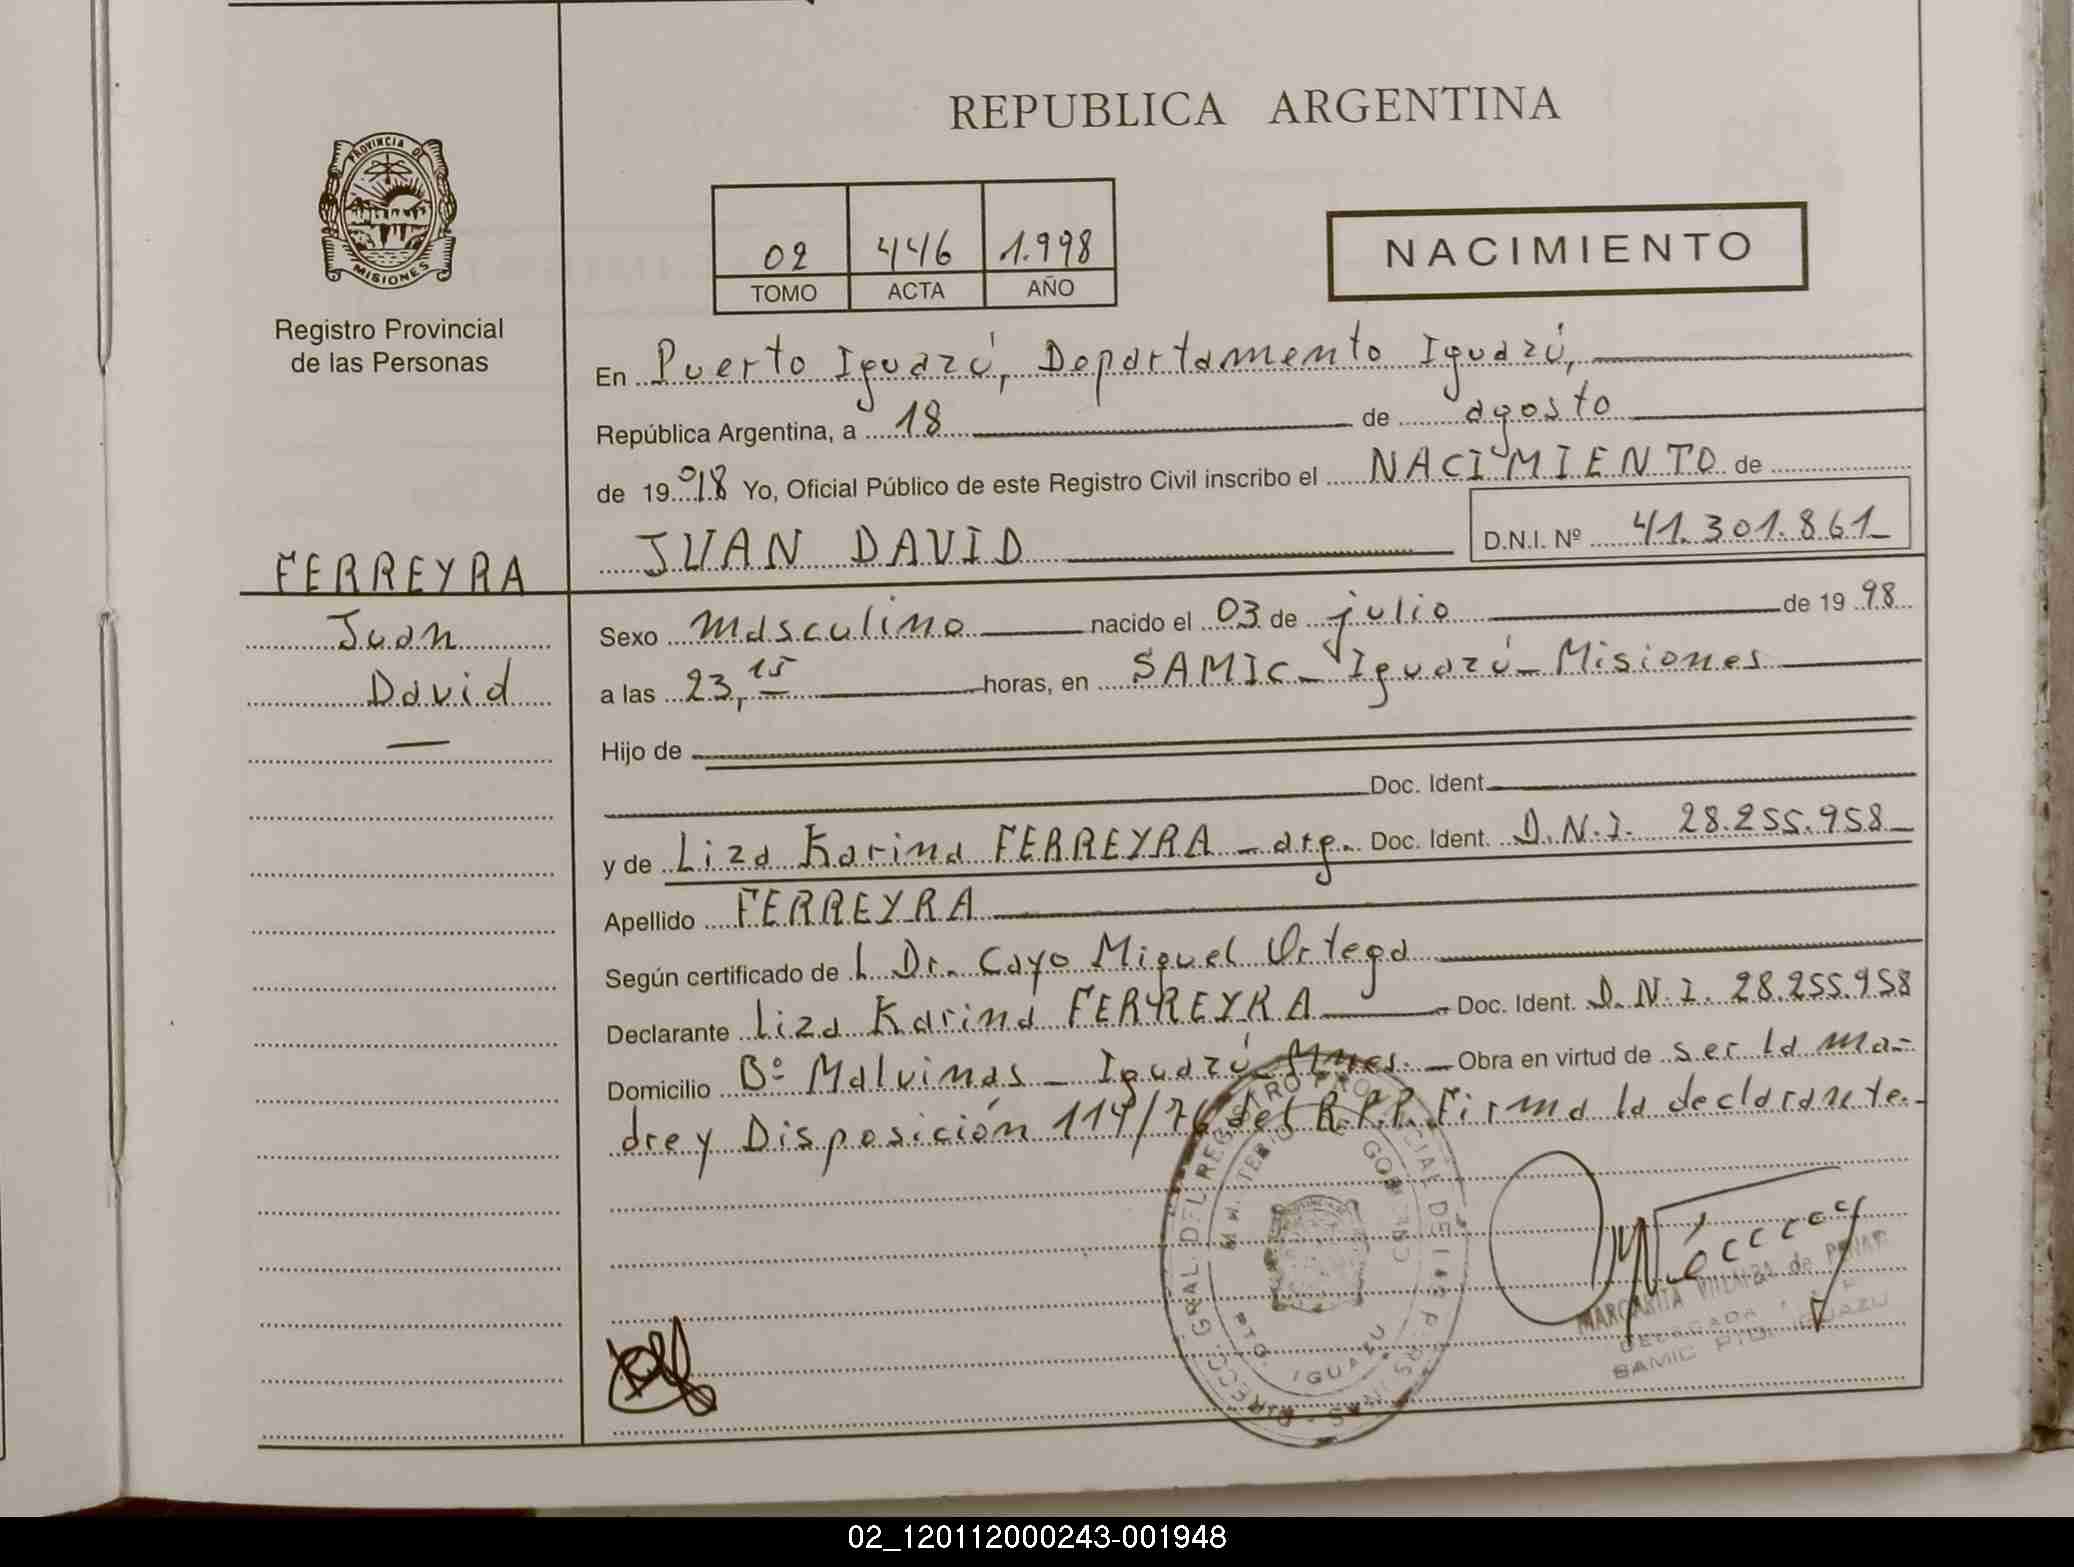 REPUBLICA ARGENTINA
PROVINCIA DE
MISIONES
Registro Provincial
de las Personas
02 446 1.998
TOMO ACTA AÑO
NACIMIENTO
En Puerto Iguazú, Departamento Iguazú,
República Argentina, a 18 de agosto
de 1998 Yo, Oficial Público de este Registro Civil inscribo el NACIMIENTO de
JUAN DAVID D.N.I. Nº 41.301.861
FERREYRA
Juan
David
Sexo masculino nacido el 03 de julio de 1998
a las 23,15 horas, en SAMIC - Iguazú - Misiones
Hijo de
Doc. Ident.
y de Liza Karina FERREYRA - arg. Doc. Ident. D.N.I. 28.255.958
Apellido FERREYRA
Según certificado de L Dr. Cayo Miguel Ortega
Declarante Liza Karina FERREYRA Doc. Ident. D.N.I. 28.255.958
Domicilio Bº Malvinas - Iguazú - Mnes. Obra en virtud de ser la ma-
dre y Disposición 114/76 del R.P.P. Firma la declarante.
DIRECC. GRAL. DEL REGISTRO PROVINCIAL DE LAS PERSONAS
MINISTERIO DE GOBIERNO
PTO. IGUAZU
MARGARITA VILLALBA de
DELEGADA
SAMIC PTO. IGUAZU
02_120112000243-001948